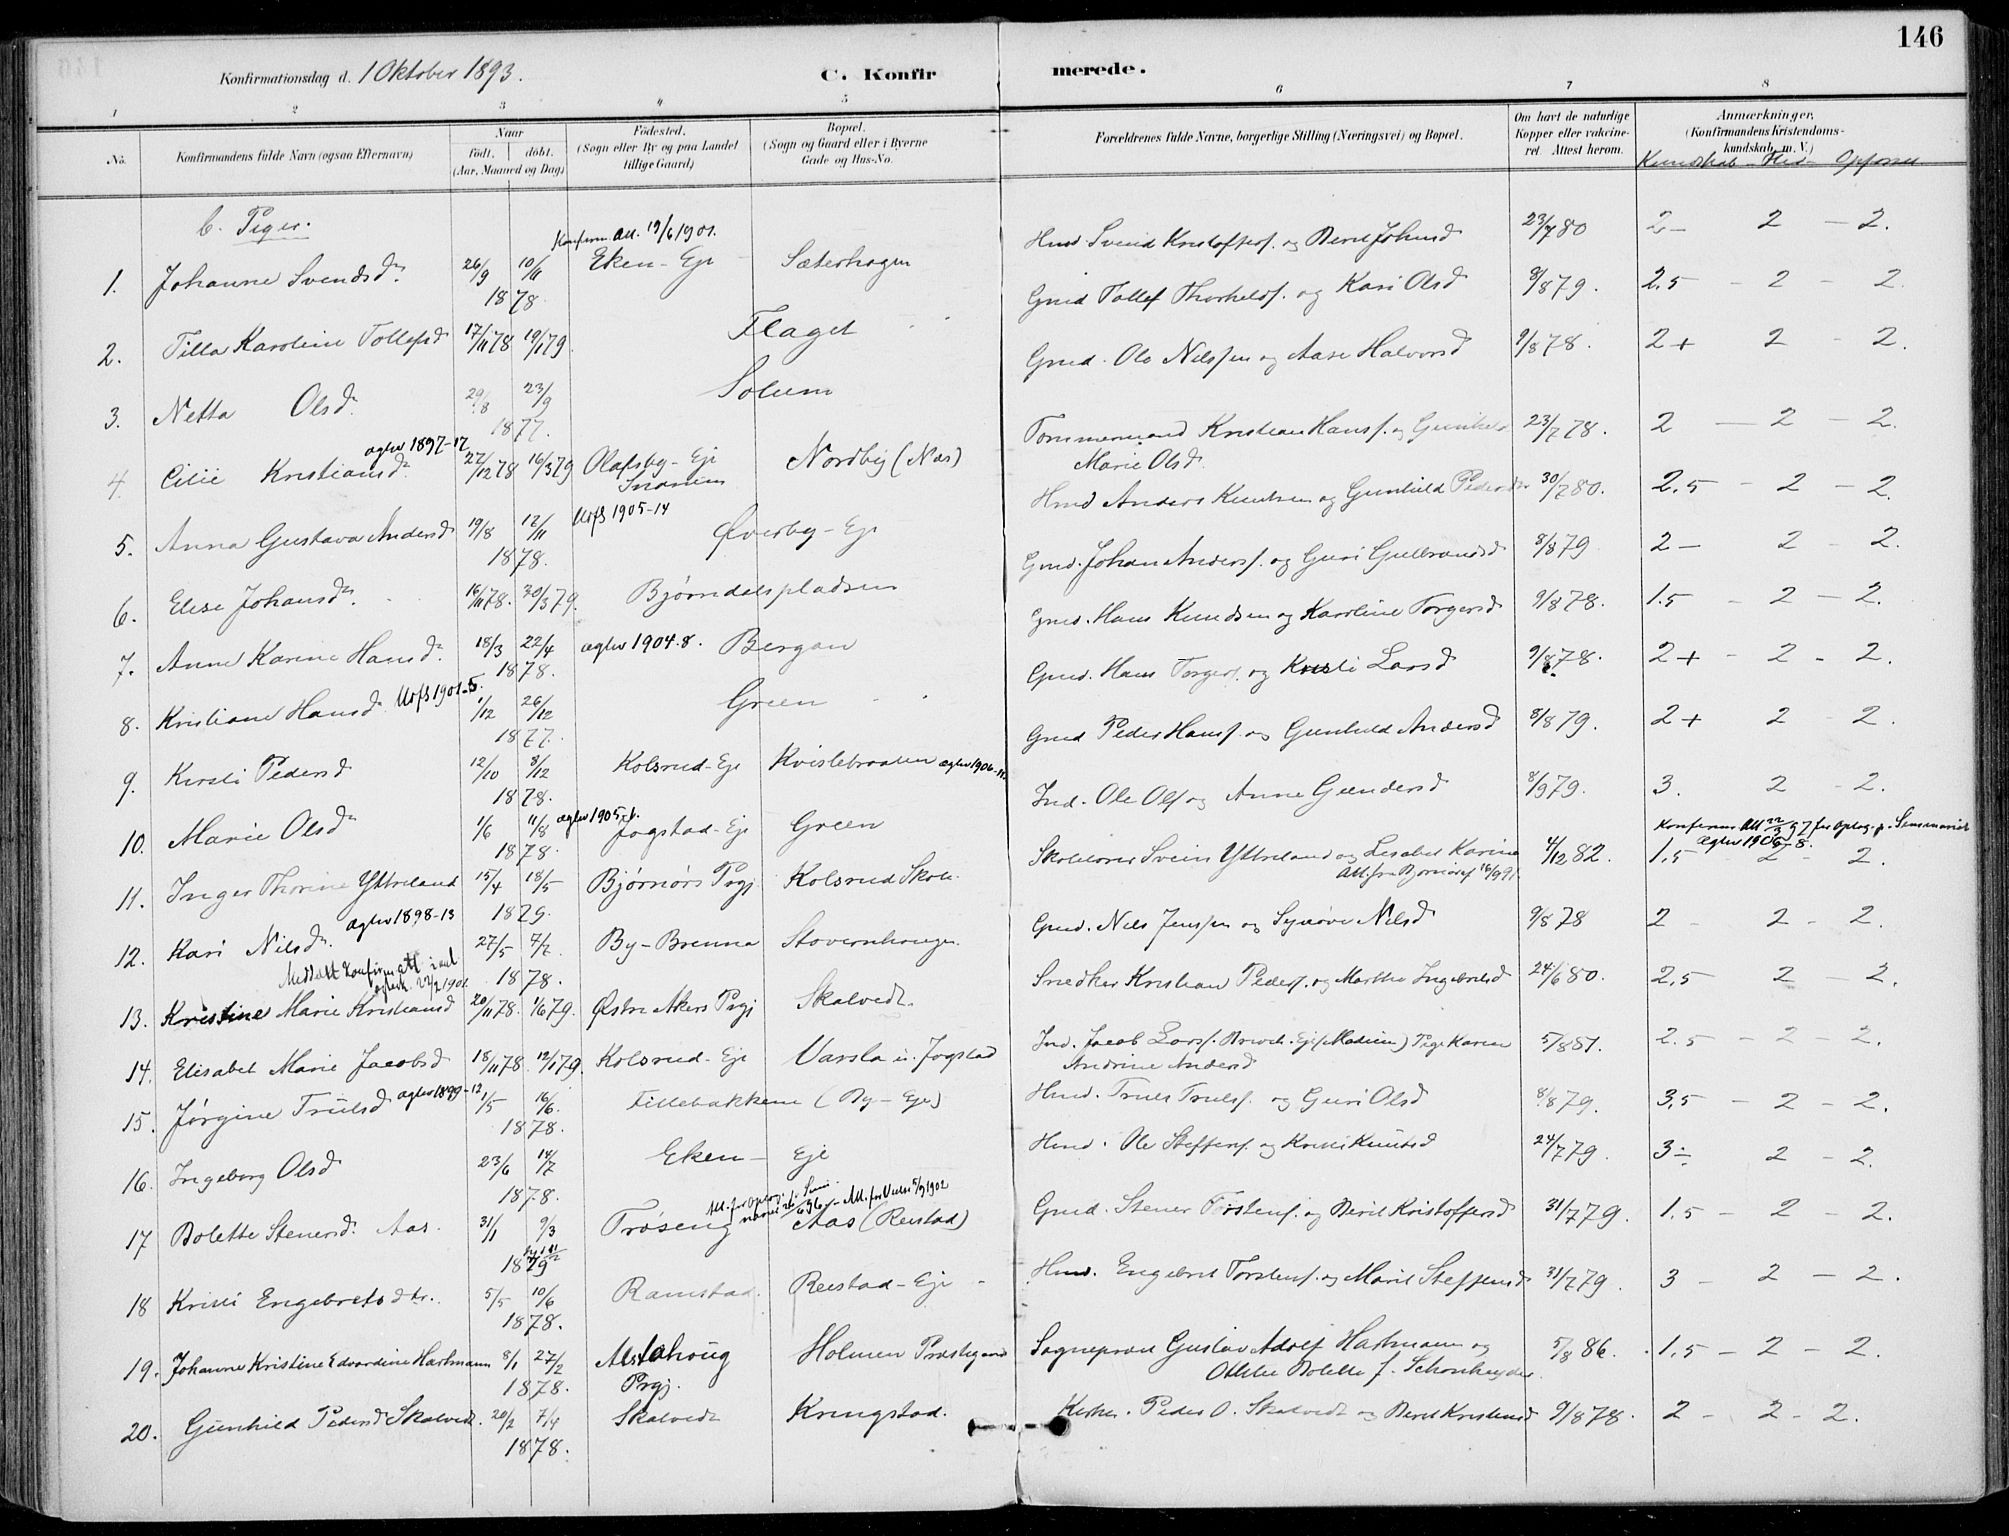 146
Konfirmationsdag d. 1 Oktober 1893.
C. Konfirmerede.
1 2 3 4 5 6 7 8
No.
Konfirmandens fulde Navn (ogsaa Efternavn)
Naar
født. døbt.
(Aar, Maaned og Dag)
Fødested.
(Sogn eller By og paa Landet
tillige Gaard)
Bopæl.
(Sogn og Gaard eller i Byerne
Gade og Hus-No.
Forældrenes fulde Navne, borgerlige Stilling (Næringsvei) og Bopæl.
Om havt de naturlige
Kopper eller vakcine-
ret. Attest herom.
Anmærkninger,
(Konfirmandens Kristendoms-
kundskab m. V.)
Kundskab - Flid - Opførsel
b. Piger.
Konfirm att. 19/6 1901.
1. Johanne Svendsd. 26/9 10/11 1878 Eken-Eje Sæterhagen Hmd Svend Kristoffers. og Berit Johnsd 23/7 80 2- 2 - 2.
2. Tilla Karoline Tollefsd 17/11 78 19/1 79 Flaget Gmd Tollef Thorkelds. og Kari Olsd 8/8 79. 2.5 - 2 - 2
3. Netta Olsd. 29/8 23/9 1877. Solum Gmd. Ole Nilssen og Aase Halvorsd 9/8 78. 2+ 2 - 2.
aglev 1897-17
4. Cilie Kristiansd. 27/12 78 16/3 79 Olafsby-Eje Nordby (Næs) Tømmermand Kristian Hans. og Gunhild
Marie Olsd. 23/7 78. 2 - 2 - 2.
5. Anna Gustava Andersd 19/8 12/11 1878. Utfs 1905-14 Øverby-Eje Hmd Anders Knutsen og Gunhild Pedersdtr 30/7 80. 2.5 - 2 - 2.
6. Elise Johansd. 16/11 78. 30/3 79. Bjørndalspladsen Gmd. Johan Anders. og Guri Gulbrandsd 8/8 79 2- 2 - 2.
7. Anne Karine Hansd. 18/3 22/4 1878. aglev 1904.8. Bergan Gmd. Hans Knudsen og Karoline Torgersd 9/8 78. 1.5 - 2 - 2.
8. Kristiane Hansd. Utfs 1901-5. 1/12 26/12 1877. Green Gmd. Hans Torgers. og Kristi Larsd 9/8 78. 2+ - 2 - 2.
9. Kirsti Pedersd 12/10 8/12 1878. Kolsrud-Eje Kvislebraaten aglev 1906-11. Gmd Peder Hans. og Gunhild Andersd 8/8 79. 2+ 2 - 2.
10. Marie Olsd 1/6 11/8 1878. aglev 1905 Jogstad-Eje Green Ind. Ole Ols. og Anne Gundersd 8/9 79. 3. 2 - 2.
Konfirm. att 22/3 97 for optag. p. Seminariet
Aglev 1906-8.
11. Inger Thorine Ytreland 15/4 18/5 1879. Bjørnørs Prgj. Kolsrud Skole. Skolelærer Svein Ytreland og Lisabet Karine
Att. fra Bjørnør 16/9 91. 4/12 82. 1.5 2 - 2.
12. Kari Nilsd. aglev 1898-13 27/5 7/7 1878. By-Brenna Stovernhaugen. Gmd. Nils Jenssen og Synøve Nilsd 9/8 78 2 - 2 - 2.
Meddelt konfirm att
22/2 1901.
13. Kristine Marie Kristiansd 20/11 78. 1/6 79. Østre Akers Prgj Skalvedt. Snedker Kristian Peders. og Marthe Ingebretsd 24/6 80. 2,5 - 2 - 2.
14. Elisabet Marie Jacobsd 18/11 78. 12/1 79. Kolsrud-Eje Varsla u. Jogstad Ind. Jacob Lars. Pige Karen
Andrine Andersd 5/8 81. 2.5 - 2 - 2.
15. Jørgine Trulsd aglev 1899-12 1/5 16/6 1878. Fillebakkene (By-Eje) Hmd. Truls Truls. og Guri Olsd 8/8 79. 3,5 - 2 - 2.
16. Ingeborg Olsd 23/6 14/7 1878. Eken- Eje Hmd. Ole Steffens. og Kristi Knutsd 24/7 79. 3÷ 2 - 2.
17 Bolette Stenersd. Aas. 31/1 9/3 1879 Trøseng Aas (Reistad) Gmd. Stener Torstens. og Berit Kristoffersd 31/7 79. 1.5 - 2 - 2.
18 Kristi Engebretsdtr. 5/5 10/6 1878. Ramstad. Reistad-Eje Hmd. Engebret Torstens. og Marit Steffensd 31/7 79. 3 - 2 - 2.
19. Johanne Kristine Edvardine Hartmann 8/1 27/2 1878. Alstahoug
Prgj. Holmen Præstegaard Sogneprest Gustav Adolf Hartmann og
Bolette f. Schønheyder 5/8 86. 1,5 - 2 - 2.
20. Gunhild Pedersd Skalvedt. 20/2 7/4 1878. Skalvedt Kringstad. Kirkes. Peder O. Skalvedt og Berit Kristensd 9/8 78. 2 - 2 - 2.